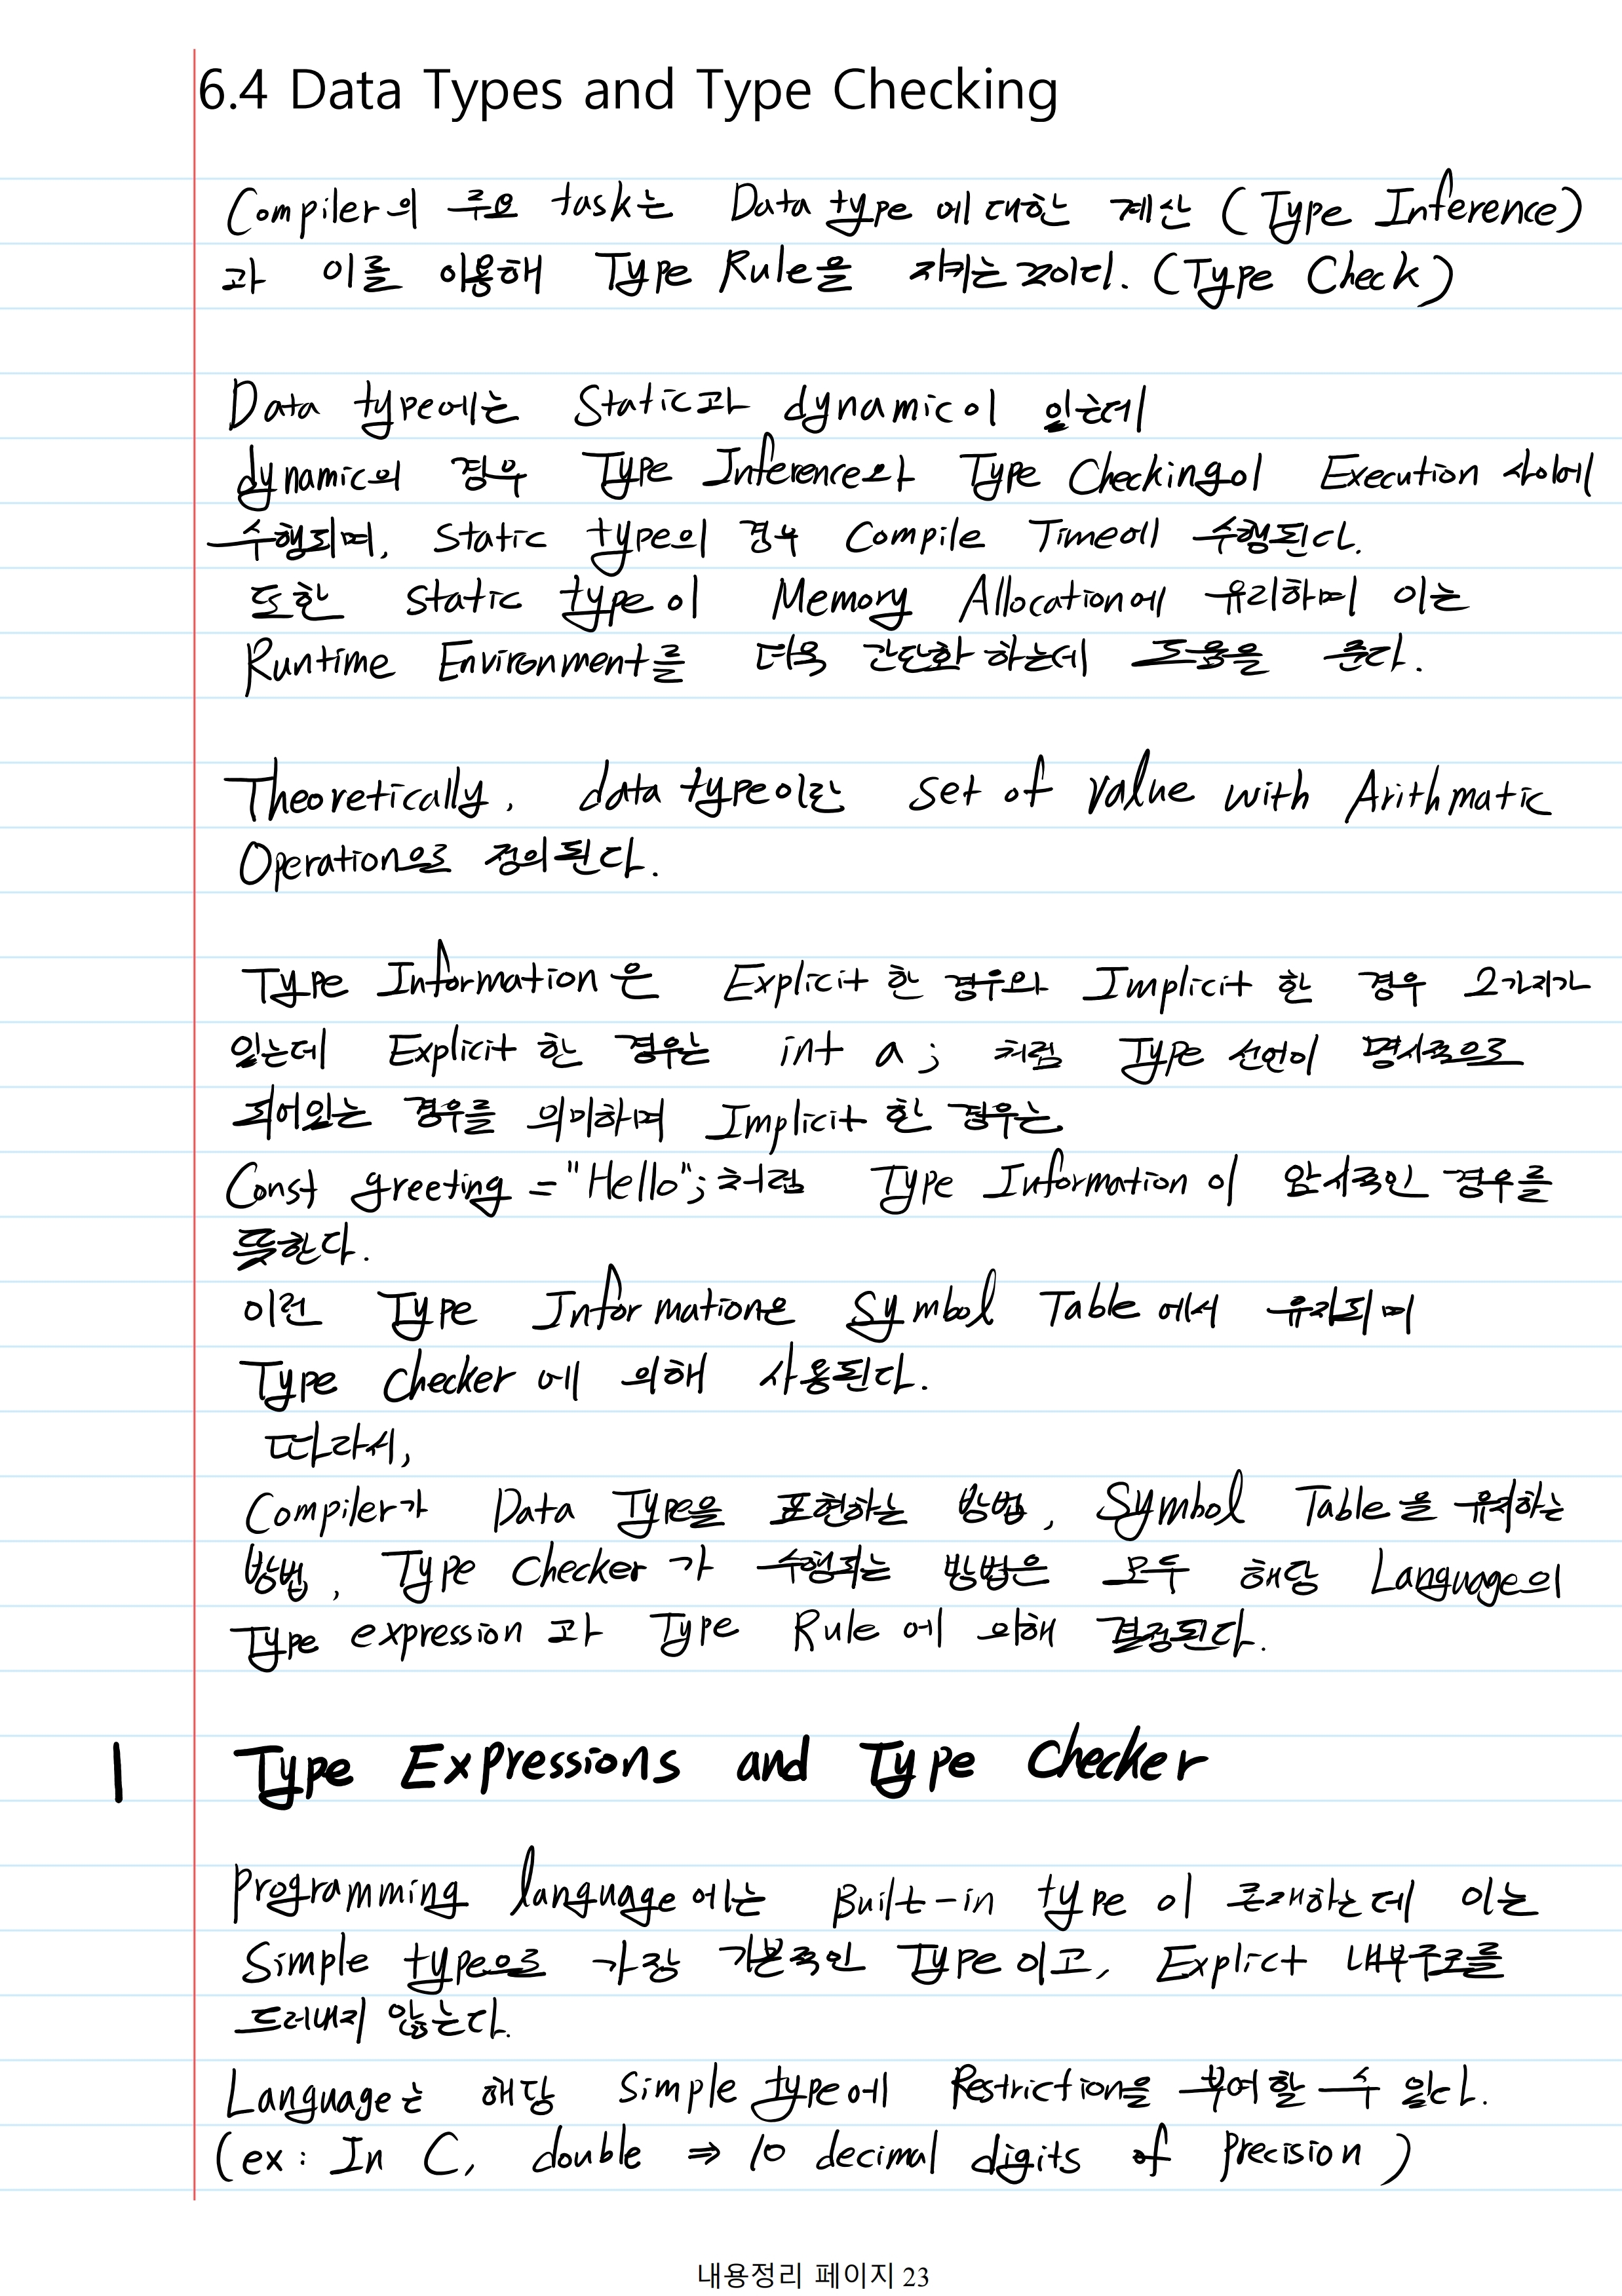 6.4 Data Types and Type Checking
Compiler의 주요 task는 Data type에 대한 계산 (Type Inference)
과 이를 이용해 Type Rule을 지키는 것이다. (Type Check)
Data type에는 Static과 dynamic이 있는데
dynamic의 경우 Type Inference와 Type Checking이 Execution 사이에
수행되며, static type의 경우 Compile Time에 수행된다.
또한 static type이 Memory Allocation에 유리하며 이는
Runtime Environment를 더욱 간단화 하는데 도움을 준다.
Theoretically, data type이란 set of value with Arithmatic
Operation으로 정의된다.
Type Information은 Explicit 한 경우와 Implicit 한 경우 2가지가
있는데 Explicit 한 경우는 int a; 처럼 Type 선언이 명시적으로
되어있는 경우를 의미하며 Implicit 한 경우는
Const greeting = "Hello"; 처럼 Type Information이 암시적인 경우를
뜻한다.
이런 Type Information은 Symbol Table에서 유지되며
Type Checker에 의해 사용된다.
따라서,
Compiler가 Data Type을 표현하는 방법, Symbol Table을 유지하는
방법, Type Checker가 수행되는 방법은 모두 해당 Language의
Type expression과 Type Rule에 의해 결정된다.
1 Type Expressions and Type Checker
Programming language에는 Built-in type이 존재하는데 이는
Simple type으로 가장 기본적인 Type이고, Explict 내부구조를
드러내지 않는다.
Language는 해당 simple type에 Restriction을 부여할 수 있다.
(ex: In C, double ⇒ 10 decimal digits of Precision)
내용정리 페이지 23